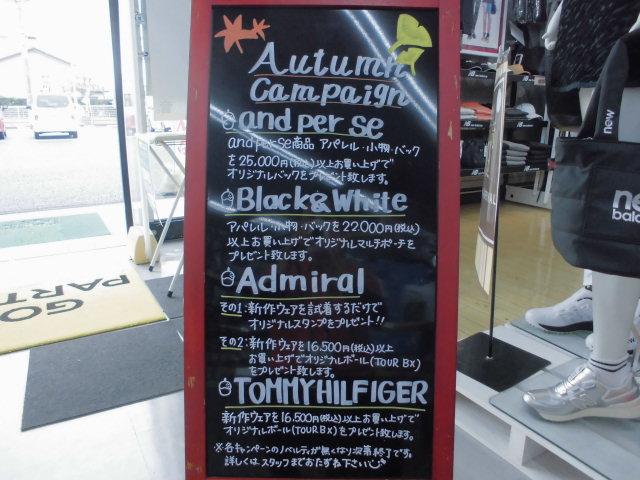 Autumn
Campaign
and per se
and per se商品 アパレル・小物・バック
を25,000円(税込)以上お買い上げで
オリジナルバックをプレゼント致します。
Black&White
アパレル・小物・バックを22,000円(税込)
以上お買い上げでオリジナルマルチポーチを
プレゼント致します。
Admiral
その1:新作ウェアを試着するだけで
オリジナルスタンプをプレゼント!!
その2:新作ウェアを16,500円(税込)以上
お買い上げでオリジナルボール(TOUR BX)
をプレゼント致します。
TOMMYHILFIGER
新作ウェアを16,500円(税込)以上お買い上げで
オリジナルボール(TOUR BX)をプレゼント致します。
※各キャンペーンのノベルティが無くなり次第終了です。
詳しくはスタッフまでおたずね下さい
GO
PART
new
new
bala